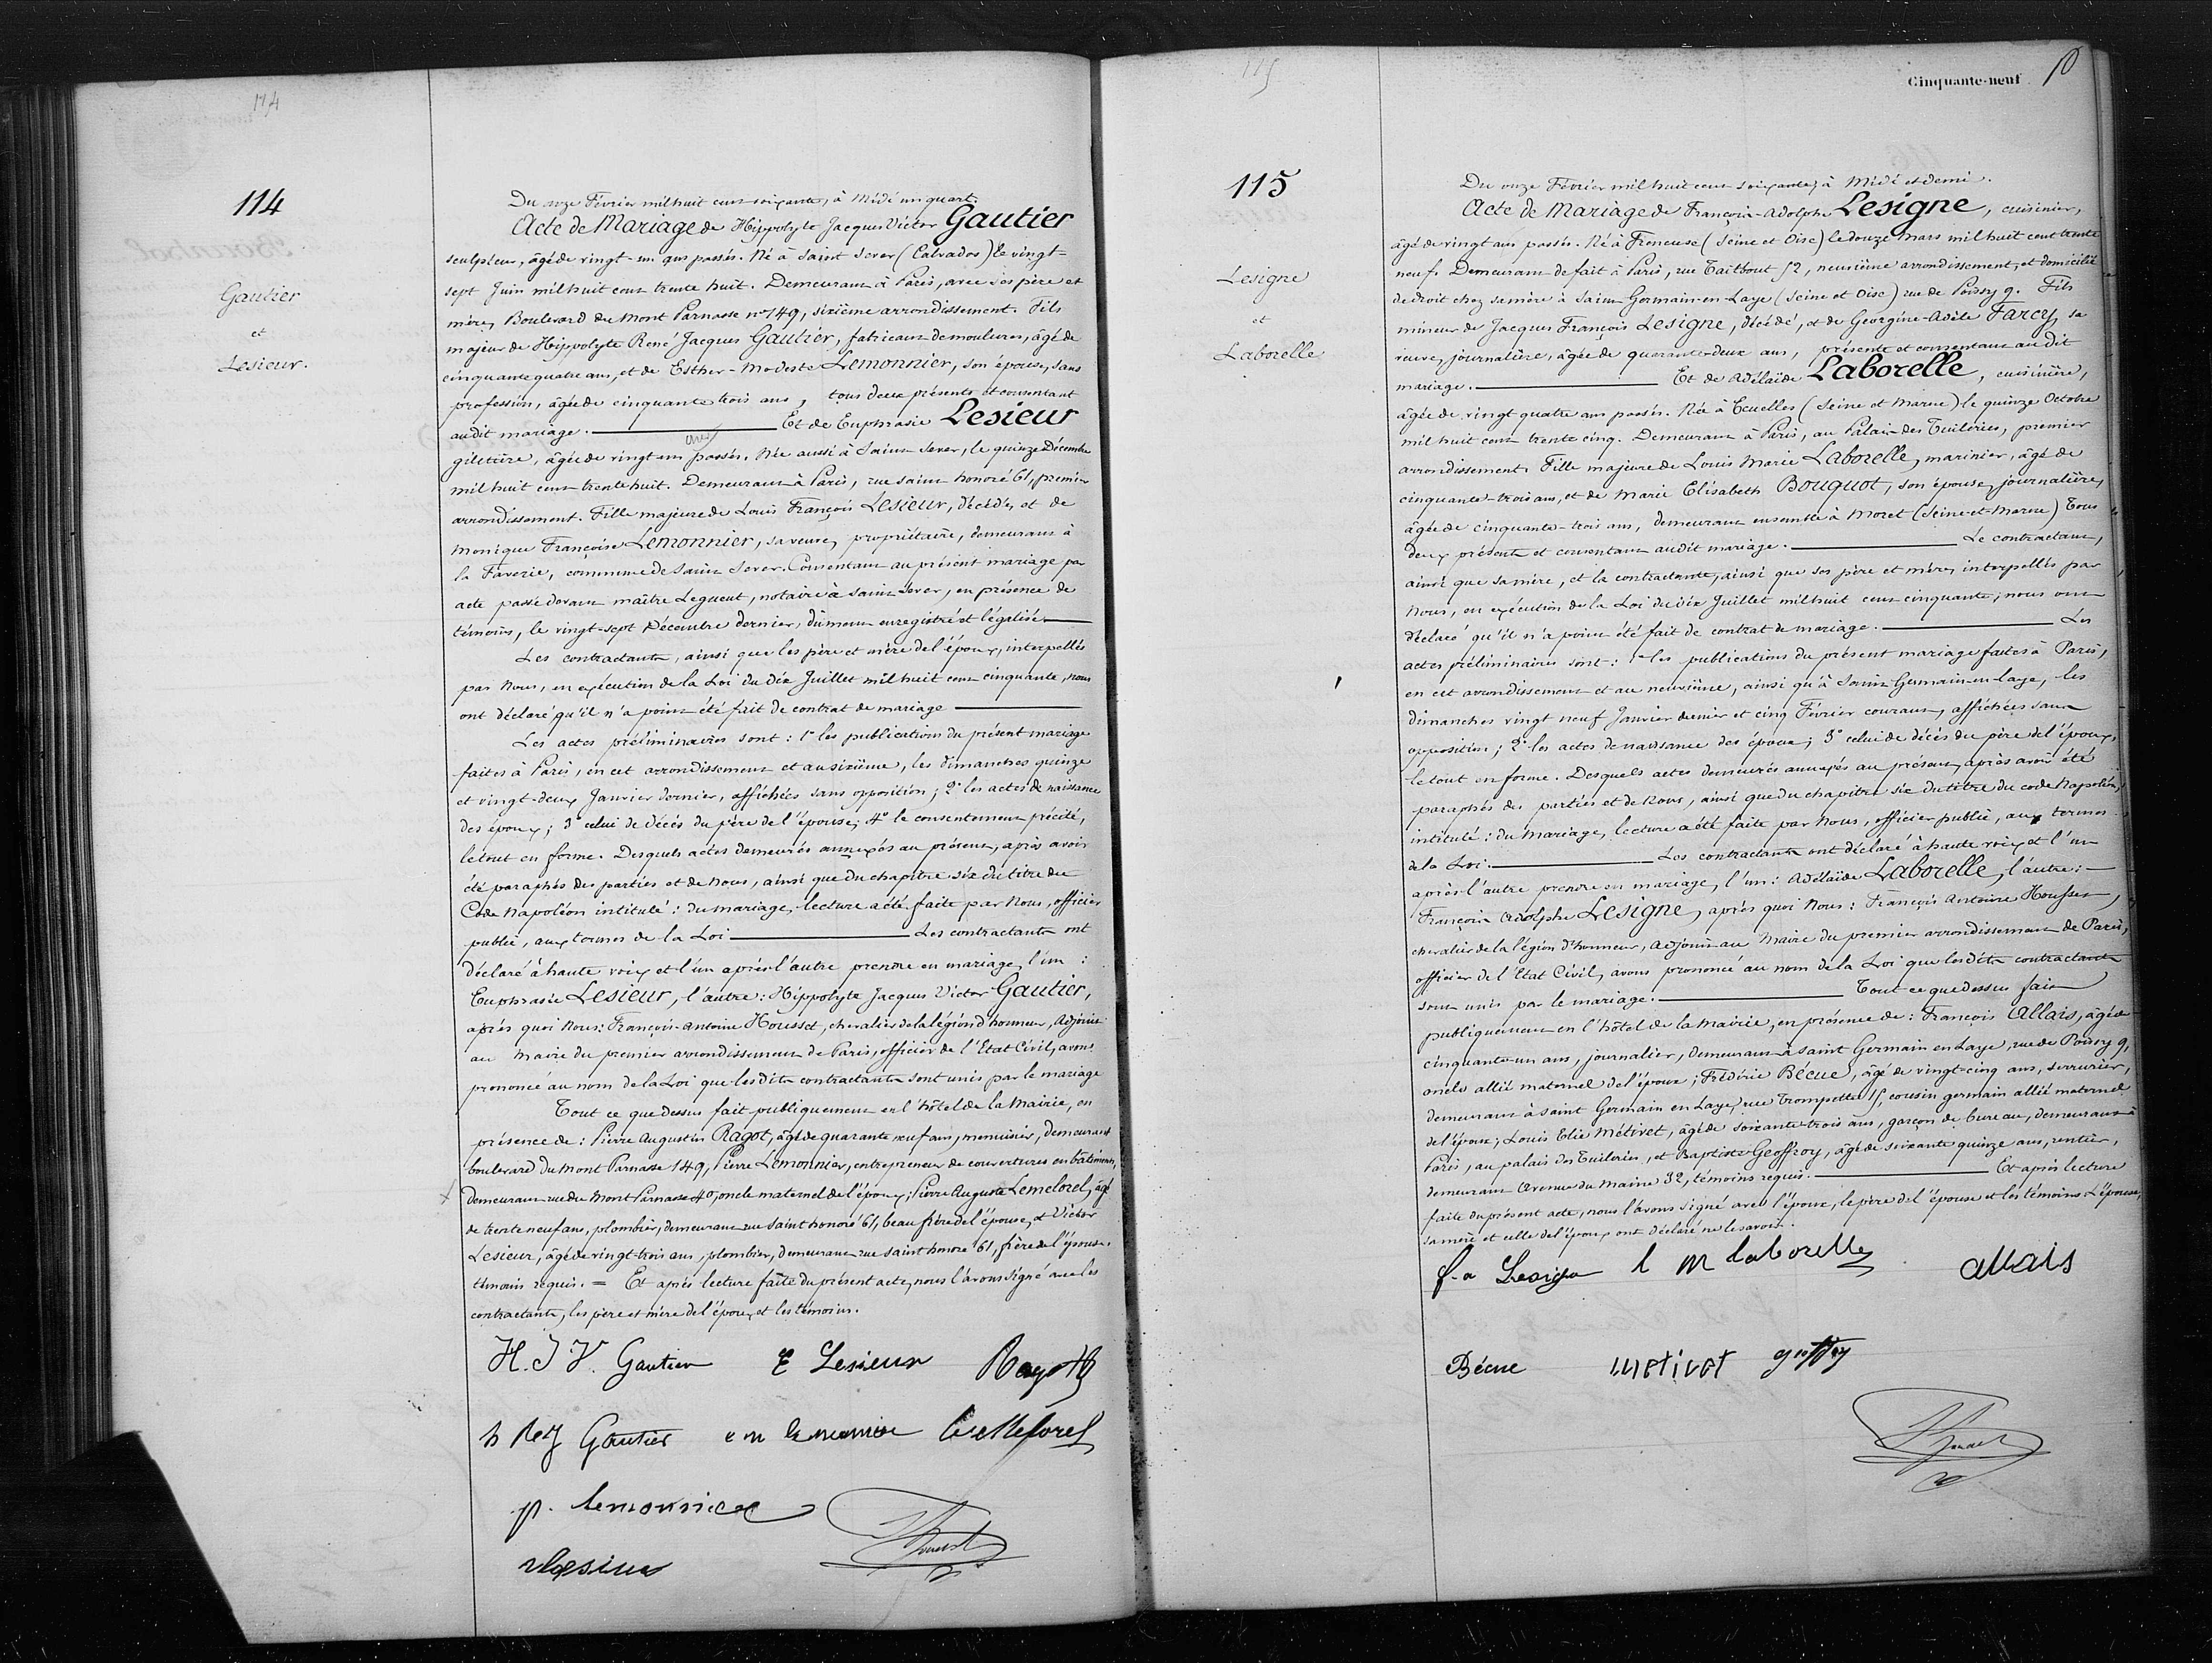 114
114
Gautier
et
Lesieur.
Du onze Février mil huit cent soixante, à Midi un quart.
Acte de Mariage de Hippolyte Jacques Victor Gautier
sculpteur, âgé de vingt-un ans passés. Né à Saint Sever (Calvados) le vingt-
sept Juin mil huit cent trente huit. Demeurant à Paris, avec ses père et
mère, Boulevard du Mont Parnasse no 149, sixième arrondissement. Fils
majeur de Hippolyte René Jacques Gautier, fabricant de moulures, âgé de
cinquante quatre ans, et de Esther-Modeste Lemonnier, son épouse, sans
profession, âgée de cinquante trois ans, tous deux présents et consentant
audit mariage. Et de Euphrasie Lesieur
giletière, âgée de vingt un ans passés. Née aussi à Saint Sever, le quinze Décembre
mil huit cent trente huit. Demeurant à Paris, rue Saint honoré 61, premier
arrondissement. Fille majeure de Louis François Lesieur, décédé, et de
Monique Françoise Lemonnier, sa veuve, propriétaire, demeurant à
la Faverie, commune de Saint Sever. Consentant au présent mariage par
acte passé devant maître Legueut, notaire à Saint Sever, en présence de
témoins, le vingt-sept Décembre dernier, dûment enregistré et légalisé.
Les contractants, ainsi que les père et mère de l'époux, interpellés
par Nous, en exécution de la Loi du dix Juillet mil huit cent cinquante, nous
ont déclaré qu'il n'a point été fait de contrat de mariage
Les actes préliminaires sont : 1° les publications du présent mariage
faites à Paris, en cet arrondissement et au sixième, les dimanches quinze
et vingt-deux Janvier dernier, affichées sans opposition ; 2° les actes de naissance
des époux ; 3° celui de décès du père de l'épouse ; 4° le consentement précité,
le tout en forme. Desquels actes demeurés annexés au présent, après avoir
été paraphés des parties et de Nous, ainsi que du chapitre six du titre du
Code Napoléon intitulé : du mariage, lecture a été faite par Nous, officier
public, aux termes de la Loi Les contractants ont
déclaré à haute voix et l'un après l'autre prendre en mariage, l'un :
Euphrasie Lesieur, l'autre : Hippolyte Jacques Victor Gautier,
après quoi Nous : François-antoine Housset, chevalier de la légion d'honneur, Adjoint
au Maire du premier arrondissement de Paris, officier de l'Etat Civil, avons
prononcé au nom de la Loi que lesdits contractants sont unis par le mariage
Tout ce que dessus fait publiquement en l'hôtel de la Mairie, en
présence de : Pierre Augustin Ragot, âgé de quarante neuf ans, menuisier, demeurant
boulevard du Mont Parnasse 149, Pierre Lemonnier, entrepreneur de couvertures en bâtiments,
demeurant rue du Mont Parnasse 40, oncle maternel de l'époux ; Pierre Auguste Lemelorel, âgé
de trente neuf ans, plombier, demeurant rue Saint honoré 61, beau frère de l'épouse, et Victor
Lesieur, âgé de vingt-trois ans, plombier, demeurant rue Saint honoré 61, frère de l'épouse
témoins requis. = Et après lecture faite du présent acte, nous l'avons signé avec les
contractants, les père et mère de l'époux et les témoins.
H. J V. Gautier E Lesieur Ragot
h Rej Gautier e m lemonnier Lemelorel
p. lemonnier
v lesieur
115
Cinquante-neuf
115
Lesigne
et
Laborelle
Du onze Février mil huit cent soixante, à Midi et demi.
Acte de Mariage de François-Adolphe Lesigne, cuisinier,
âgé de vingt ans passés. Né à Freneuse (Seine et Oise) le douze Mars mil huit cent trente
neuf. Demeurant de fait à Paris, rue Taitbout 52, neuvième arrondissement, et domicilié
de droit chez sa mère à Saint Germain-en-Laye (Seine et Oise) rue de Poissy 9. Fils
mineur de Jacques François Lesigne, décédé, et de Georgine-Adèle Farcy, sa
veuve, journalière, âgée de quarante-deux ans, présente et consentant audit
mariage. Et de Adélaïde Laborelle, cuisinière,
âgée de vingt quatre ans passés. Née à Ecuelles (Seine et Marne) le quinze Octobre
mil huit cent trente cinq. Demeurant à Paris, au Palais des Tuileries, premier
arrondissement. Fille majeure de Louis Marie Laborelle, marinier, âgé de
cinquante-trois ans, et de Marie Elisabeth Bouquot, son épouse, journalière,
âgée de cinquante-trois ans, demeurant ensemble à Moret (Seine-et-Marne) Tous
deux présents et consentant audit mariage. Le contractant,
ainsi que sa mère, et la contractante, ainsi que ses père et mère, interpellés par
Nous, en exécution de la Loi du dix Juillet mil huit cent cinquante, nous ont
déclaré qu'il n'a point été fait de contrat de mariage. Les
actes préliminaires sont : 1° les publications du présent mariage faites à Paris,
en cet arrondissement et au neuvième, ainsi qu'à Saint Germain-en-laye, les
dimanches vingt neuf Janvier dernier et cinq Février courant, affichées sans
opposition ; 2° les actes de naissance des époux ; 3° celui de décès du père de l'époux,
le tout en forme. Desquels actes demeurés annexés au présent, après avoir été
paraphés des parties et de Nous, ainsi que du chapitre six du titre du code Napoléon,
intitulé : du Mariage, lecture a été faite par Nous, officier public, aux termes
de la Loi. Les contractants ont déclaré à haute voix et l'un
après l'autre prendre en mariage, l'un : Adélaïde Laborelle, l'autre :
François Adolphe Lesigne, après quoi Nous : François Antoine Housset,
chevalier de la légion d'honneur, Adjoint au Maire du premier arrondissement de Paris,
officier de l'Etat Civil, avons prononcé au nom de la Loi que lesdits contractants
sont unis par le mariage. Tout ce que dessus fait
publiquement en l'hôtel de la Mairie, en présence de : François Allais, âgé de
cinquante-un ans, journalier, demeurant à Saint Germain en Laye, rue de Poissy 9,
oncle allié maternel de l'époux ; Frédéric Bécue, âgé de vingt-cinq ans, serrurier,
demeurant à Saint Germain en Laye, rue Trompette 15 cousin germain allié maternel
de l'époux ; Louis Elie Métivet, âgé de soixante-trois ans, garçon de bureau, demeurant à
Paris, au palais des Tuileries, et Baptiste Geoffroy, âgé de soixante quinze ans, rentier,
demeurant Avenue du Maine 32, témoins requis. Et après lecture
faite du présent acte, nous l'avons signé avec l'époux, le père de l'épouse et les témoins. L'épouse,
sa mère et celle de l'époux ont déclaré ne le savoir.
f. a Lesigne l m laborelle allais
Bécue metivet